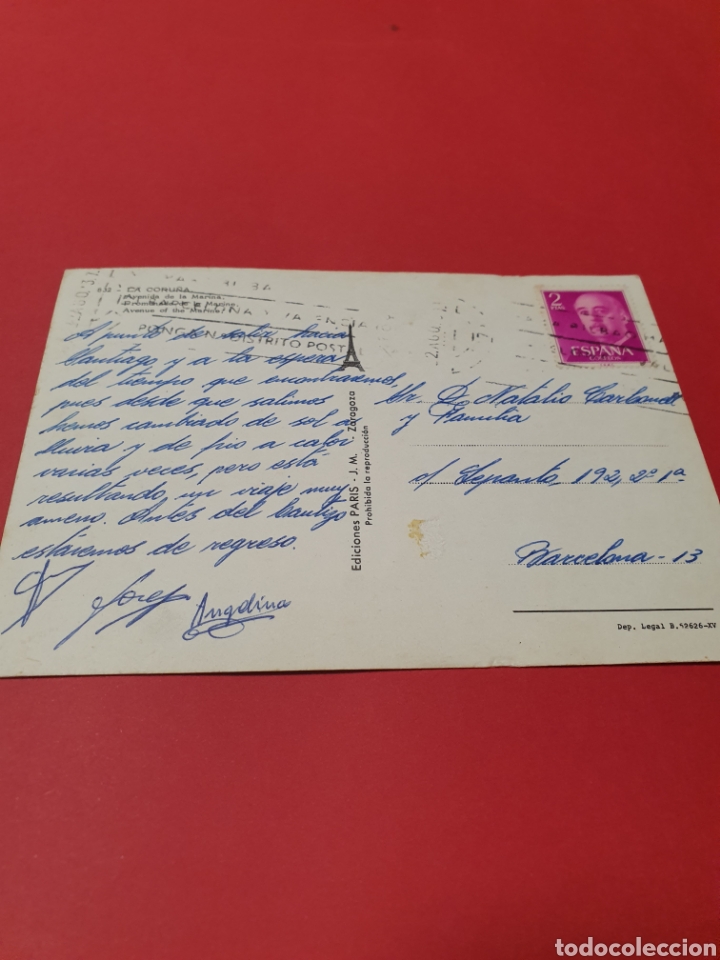 LA CORUÑA
Avenida de la Marina.
Promenade de la Marine.
Avenue of the Marine.
PONGA Nº DISTRITO POSTAL
2
PTAS
ESPAÑA
CORREOS
Al punto de salir hacia
Santiago y a la espera
del tiempo que encontraremos,
pues desde que salimos
hemos cambiado de sol a
lluvia y de frio a calor
varias veces, pero está
resultando un viaje muy
ameno. Antes del
estaremos de regreso.
Josep
Angelina
Ediciones PARIS - J. M. - Zaragoza
Prohibida la reproducción
Sr. D. Natalio Carbonell
y Familia
c/ Lepanto, 192, 2º 1ª
Barcelona - 13
Dep. Legal B.52626-XV
todocoleccion